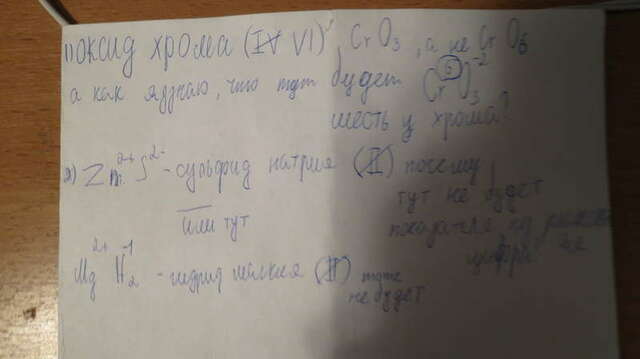 1) оксид хрома (IV VI), CrO3, а не CrO6
а как я узнаю, что тут будет Cr⁶O3⁻²
шесть у хрома?
2) Zn²⁺S²⁻ - сульфид натрия (II) почему
тут не будет
или тут
показателя
цифры
Mg²⁺H2⁻¹ - гидрид магния (II) тоже
не будет